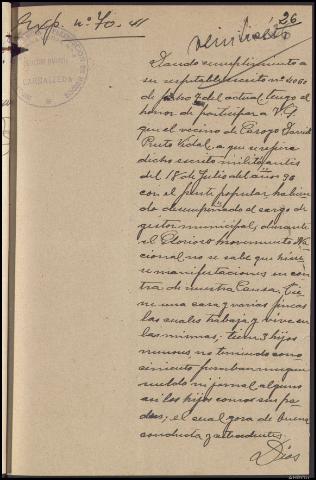 Exp. nº 70. 41
26
CARBALLEDA
Dando cumplimiento a
su respetable escrito nº 4060
de fecha 7 del actual, tengo el
honor de participar a V.S.
que el vecino de Casayo David
Prieto Vidal, a que se refiere
dicho escrito militó antes
del 18 de Julio del año 36
con el frente popular habien
do desempeñado el cargo de
gestor municipal, durante
el Glorioso movimiento Na-
cional no se sabe que hicie
se manifestaciones en con
tra de nuestra Causa. Tie
ne una casa y varias fincas
las cuales trabaja y vive en
las mismas; tiene 3 hijos
menores, no teniendo cono
cimiento perciban ningun
sueldo ni jornal alguno
asi los hijos como su pa
dre; el cual goza de buena
conducta y antecedentes.
Dios